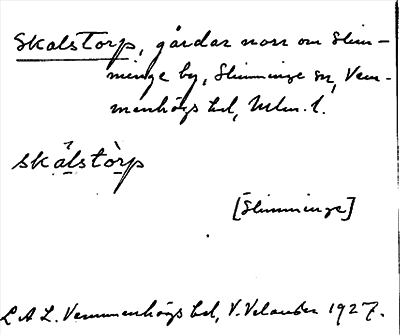 Skalstorp, gårdar norr om Slim-
minge by, Slimminge sn, Vem-
menhögs hd, Mlm. l.
skålstòrp
[Slimminge]
L A L. Vemmenhögs hd, V. Velander 1927.